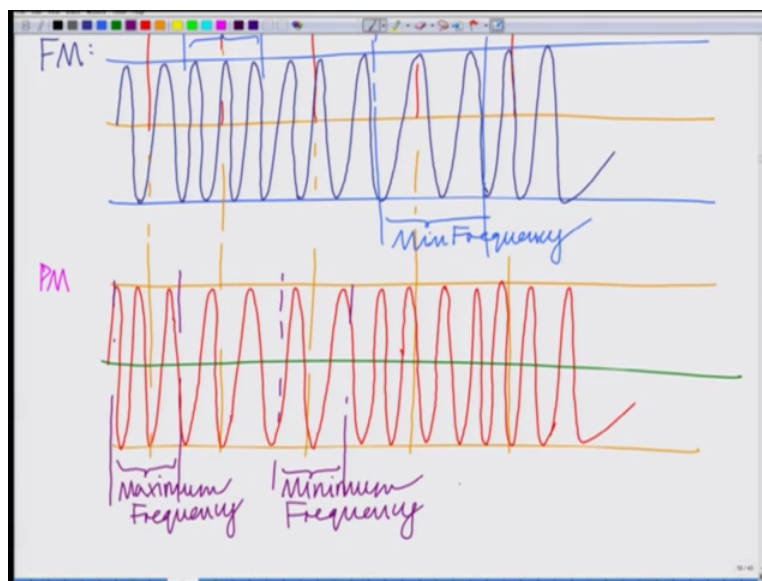 FM:
Min Frequency
PM
Maximum
Frequency
Minimum
Frequency